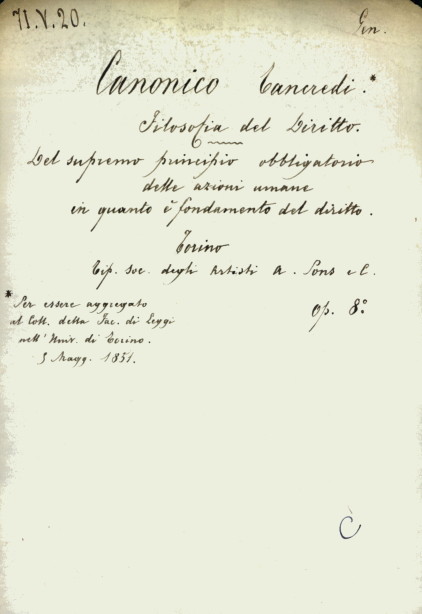 71.V.20.
Gen.
Canonico Tancredi.*
Filosofia del Diritto.
Del supremo principio obbligatorio
delle azioni umane
in quanto è fondamento del diritto.
Torino
Tip. soc. degli Artisti A. Pons e C.
* Per essere aggregato
al Coll. della Fac. di Leggi
nell'Univ. di Torino.
5 Magg. 1851.
Op. 8°
C